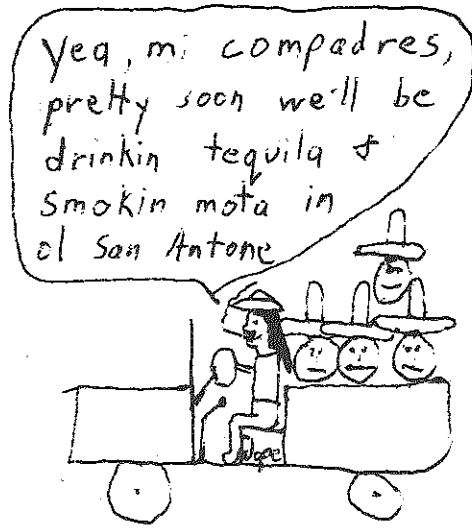 Yea, mi compadres,
pretty soon we'll be
drinkin tequila &
smokin mota in
ol San Antone